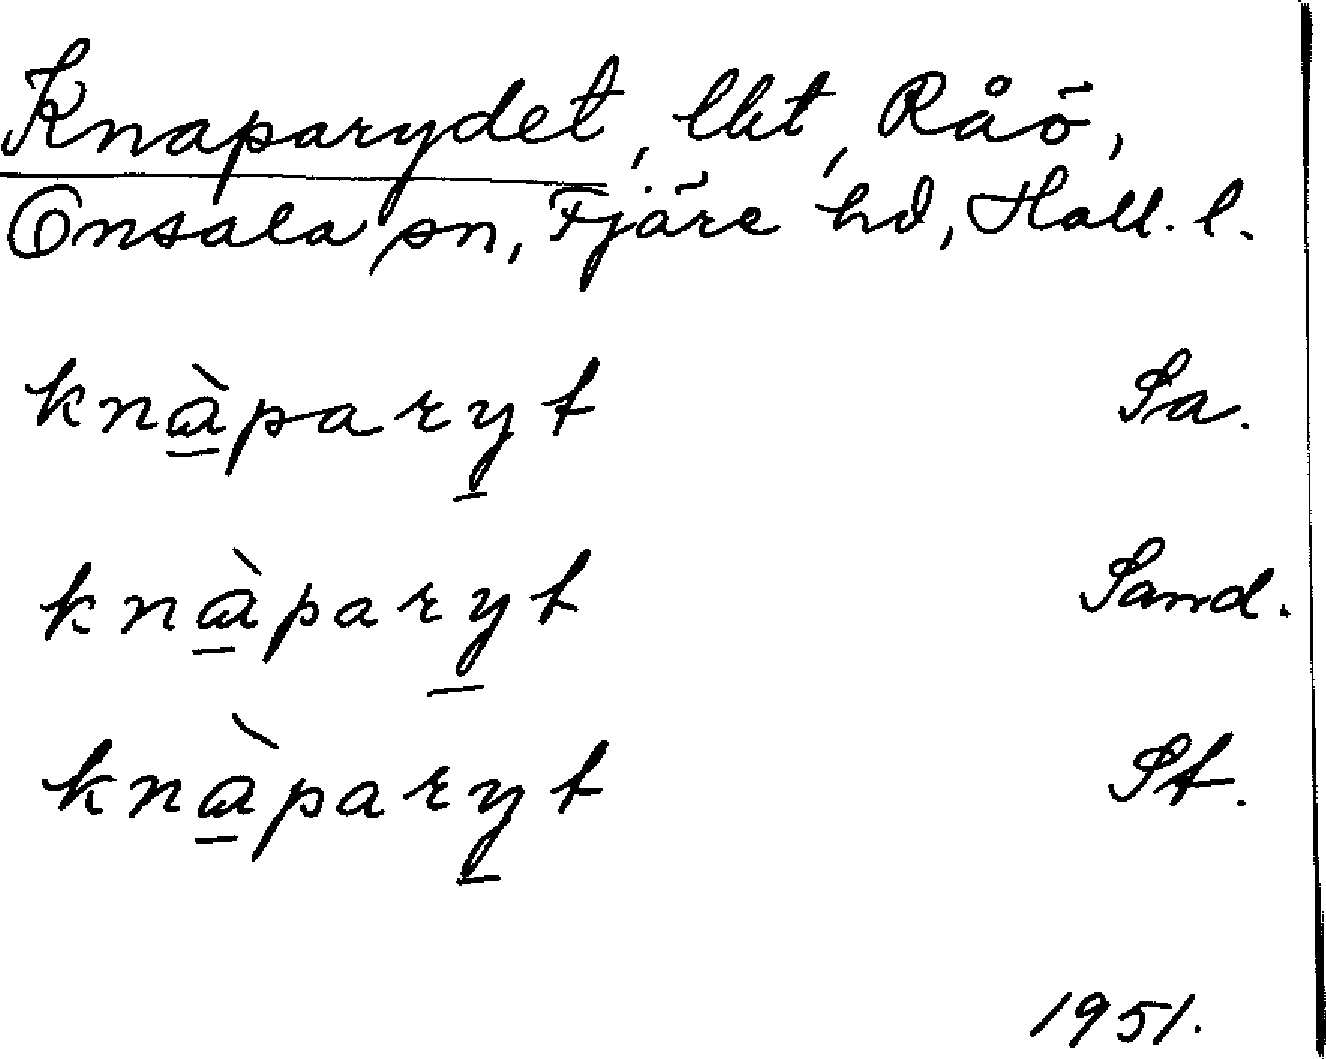 Knaparydet, lht, Råö,
Onsala sn, Fjäre hd, Hall. l.
knàparyt Sa.
knàparyt Sand.
knàparyt St.
1951.